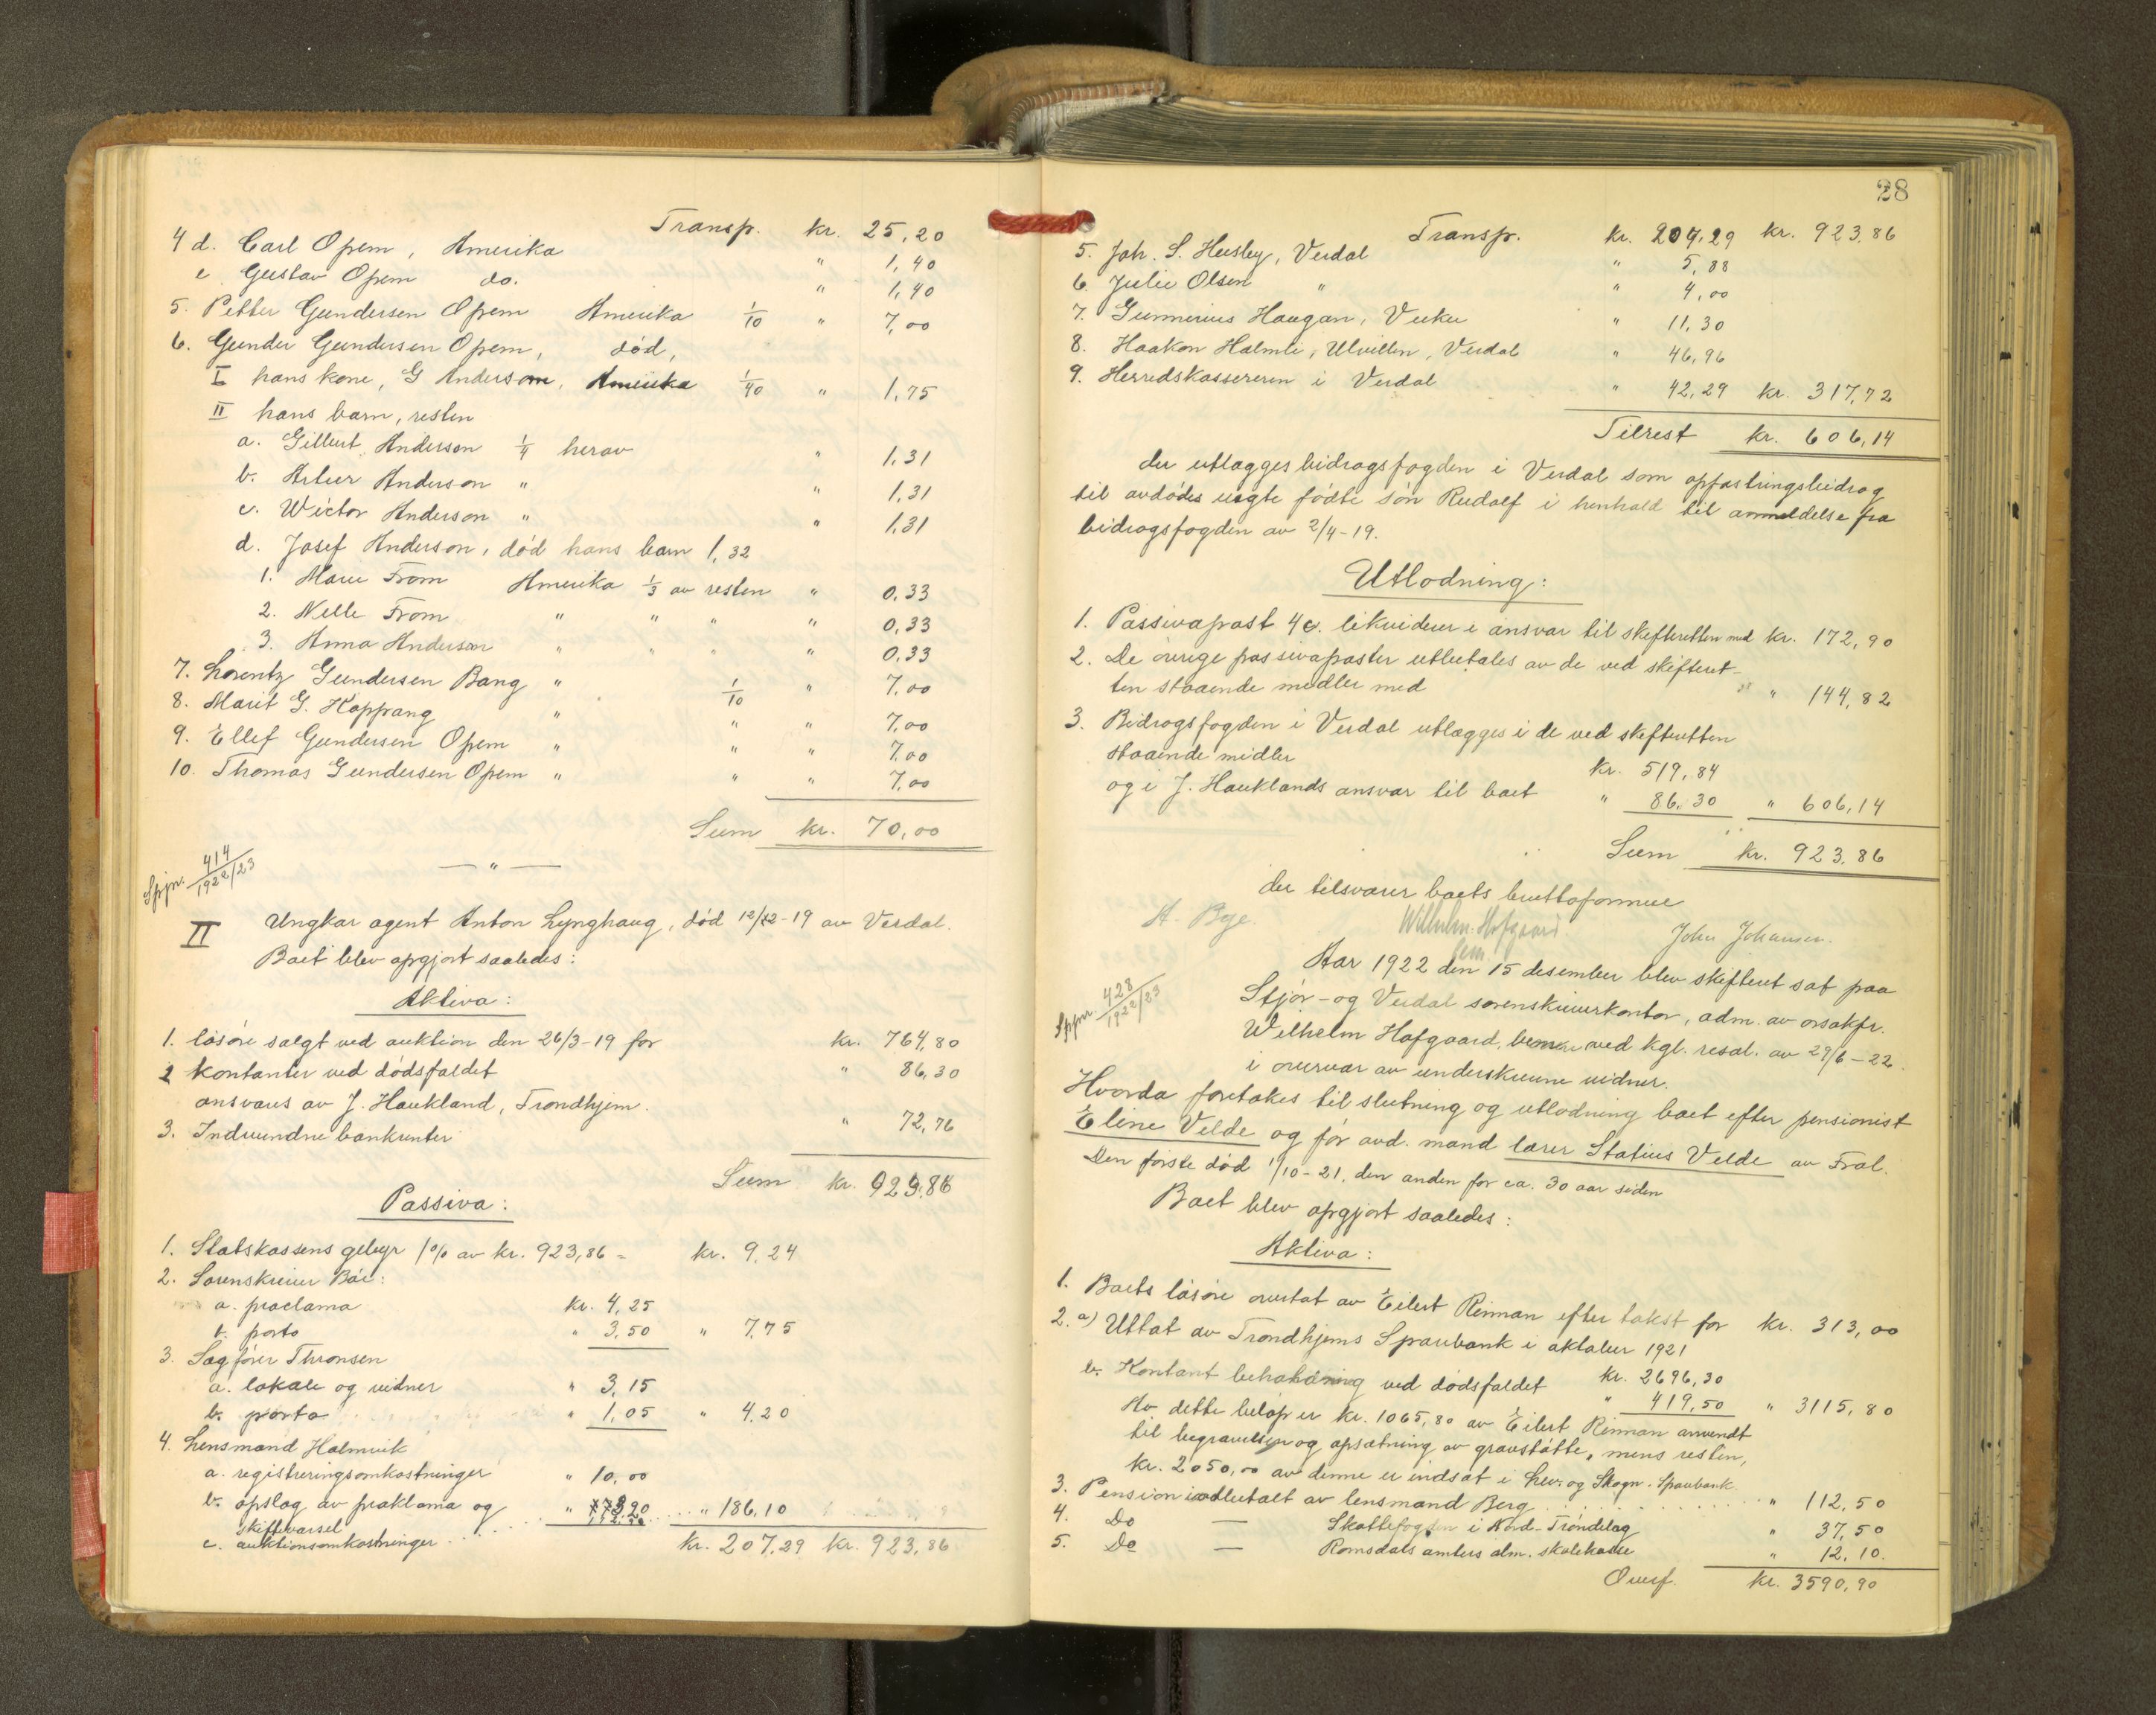 Transp. kr. 25,20
4 d. Carl Opem, Amerika " 1,40
e Gustav Opem do. " 1,40
5. Petter Gundersen Opem Amerika 1/10 " 7,00
6. Gunder Gundersen Opem, død,
I hans kone, G Anderson, Amerika 1/40 " 1,75
II hans barn, resten
a. Gilbert Anderson 1/4 herav " 1,31
b. Artur Anderson " " 1,31
c. Wictor Anderson " " 1,31
d. Josef Anderson, død hans barn 1,32
1. Marie From Amerika 1/3 av resten " 0,33
2. Nelle From " " " " 0,33
3. Anna Anderson " " " " 0,33
7. Lorentz Gundersen Bang " 1/10 " 7,00
8. Marit G. Hoppang " " " 7,00
9. Ellef Gundersen Opem " " " 7,00
10. Thomas Gundersen Opem " " " 7,00
Sum kr. 70,00
— " —
Spjn. 414/1922/23
II Ungkar agent Anton Lynghaug, død 12/12-19 av Verdal.
Boet blev opgjort saaledes:
Aktiva:
1. løsøre solgt ved auktion den 26/3-19 for kr. 764,80
2 kontanter ved dødsfaldet " 86,30
ansvares av J. Haukland, Trondhjem.
3. Indvundne bankrenter " 72,76
Sum kr. 923,86
Passiva:
1. Statskassens gebyr 1% av kr. 923,86 = kr. 9,24
2. Sorenskriver Bøe:
a. proclama kr. 4,25
b. porto " 3,50 " 7,75
3. Sagfører Thronsen
a. lokale og vidner " 3,15
b. porto " 1,05 " 4,20
4. Lensmand Holmvik
a. registreringsomkostninger " 10,00
b. opslag av proklama og " 3,20 " 186,10
skiftevarsel
c. auktionsomkostninger 172,90
kr. 207,29 kr. 923,86
28
Transp. kr. 207,29 kr. 923,86
5. Joh. S. Husby, Verdal " 5,88
6. Julie Olsen " " 4,00
7. Gunnerius Haugan, Vuku " 11,30
8. Haakon Holmli, Ulvillen, Verdal " 46,96
9. Herredskassereren i Verdal " 42,29 kr. 317,72
Tilrest kr. 606,14
der utlægges bidragsfogden i Verdal som opfostringsbidrag
til avdødes uegte fødte søn Rudolf i henhold til anmeldelse fra
bidragsfogden av 2/4-19.
Utlodning:
1. Passivapost 4c. likviderer i ansvar til skifteretten med kr. 172,90
2. De øvrige passivaposter utbetales av de ved skifteret-
ten staaende midler med " 144,82
3. Bidragsfogden i Verdal utlægges i de ved skifteretten
staaende midler kr. 519,84
og i J. Hauklands ansvar til boet " 86,30 " 606,14
Sum kr. 923,86
der tilsvarer boets bruttoformue
A. Bye. Wilhelm Hofgaard John Johansen.
Aar 1922 den 15 desember blev skifteret sat paa
Spjnr. 428/1922/23
Stjør- og Verdal sorenskriverkontor, adm. av orsakfr.
Wilhelm Hofgaard, bem. ved kgl. resol. av 29/6-22.
i overvær av underskrevne vidner.
Hvorda foretokes til slutning og utlodning boet efter pensionist
Eline Velde og før avd. mand lærer Statius Velde av Frol.
Den første død 1/10-21, den anden for ca. 30 aar siden
Boet blev opgjort saaledes:
Aktiva:
1. Boets løsøre overtat av Eilert Rinnan efter takst for kr. 313,00
2. a) Uttat av Trondhjems Sparebank i oktober 1921
kr. 2696,30
b. Kontant beholdning ved dødsfaldet " 419,50 " 3115,80
Av dette beløp er kr. 1065,80 av Eilert Rinnan anvendt
til begravelsen og opsætning av gravstøtte, mens resten,
kr. 2050,00 av denne er indsat i Lev. og Skogn. Sparebank.
3. Pension indbetalt av lensmand Berg " 112,50
4. Do — Skattefogden i Nord-Trøndelag " 37,50
5. Do — Romsdals amters alm. skolekasse " 12,10.
Overf. kr. 3590,90